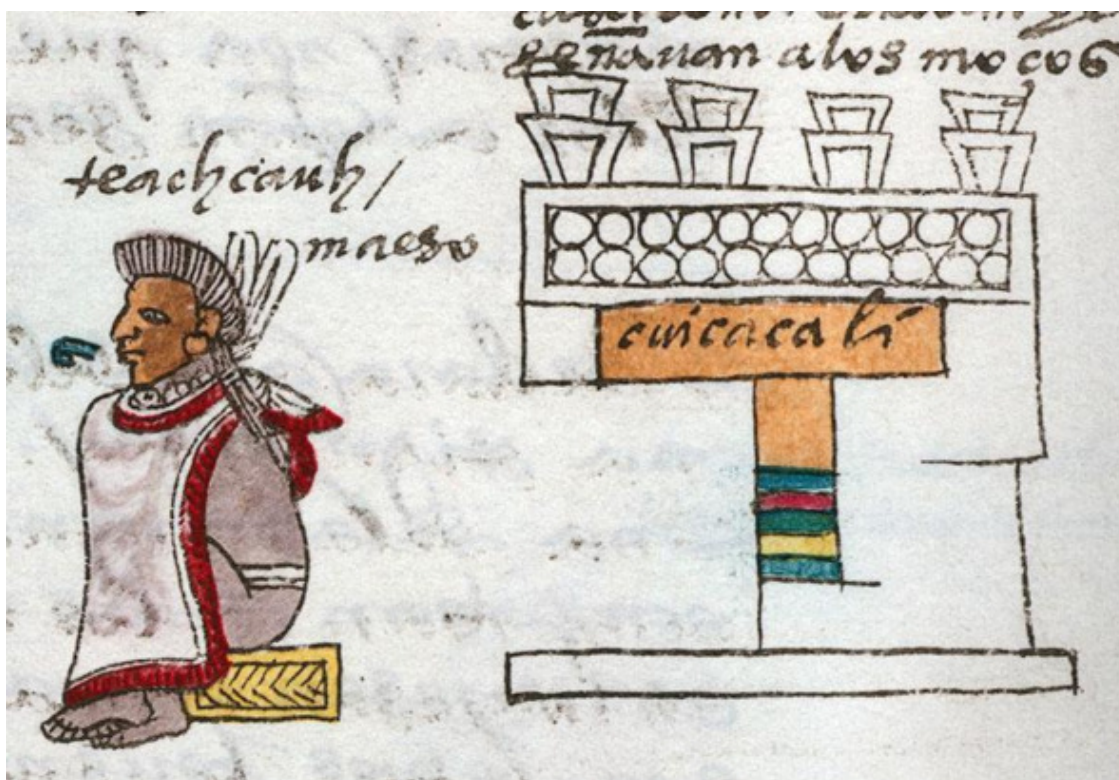 señavan a los moços
teachcauh /
maeso
cuicacali